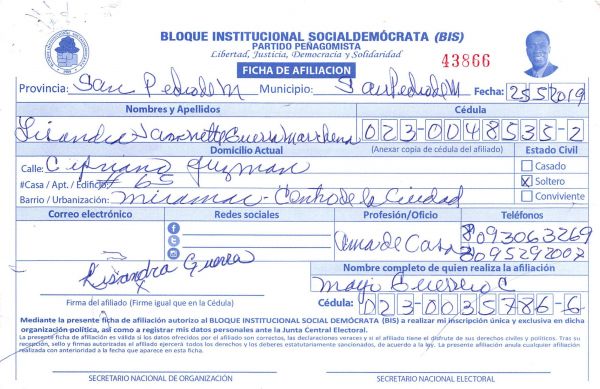 BLOQUE INSTITUCIONAL SOCIALDEMÓCRATA (BIS)
PARTIDO PEÑAGOMISTA
Libertad, Justicia, Democracia y Solidaridad
43866
FICHA DE AFILIACION
Provincia: San Pedro de M Municipio: San Pedro de M Fecha: 25 5 2019
Nombres y Apellidos Cédula
Lisandra Guerra Marchena 023-0048535-2
Domicilio Actual (Anexar copia de cédula del afiliado) Estado Civil
Calle: Cipriano Guzman Casado
#Casa / Apt. / Edificio # 65 X Soltero
Barrio / Urbanización: Miramar - Centro de la Ciudad Conviviente
Correo electrónico Redes sociales Profesión/Oficio Teléfonos
Ama de Casa 8093063269
8095292007
Lisandra Guerra
Nombre completo de quien realiza la afiliación
C
Firma del afiliado (Firme igual que en la Cédula) Cédula: 023-0035786-6
Mediante la presente ficha de afiliación autorizo al BLOQUE INSTITUCIONAL SOCIAL DEMÓCRATA (BIS) a realizar mi inscripción única y exclusiva en dicha
organización política, así como a registrar mis datos personales ante la Junta Central Electoral.
La presente ficha de afiliación es válida si los datos ofrecidos por el afiliado son correctos, las declaraciones veraces y si el afiliado tiene el disfrute de sus derechos civiles y políticos. Tras su
recepción, sello y firmas autorizadas el afiliado ejercerá todos los derechos y los deberes estatutariamente sancionados, de acuerdo a la ley. La presente afiliación anula cualquier afiliación
realizada con anterioridad a la fecha que aparece en esta ficha.
SECRETARIO NACIONAL DE ORGANIZACIÓN SECRETARIO NACIONAL ELECTORAL